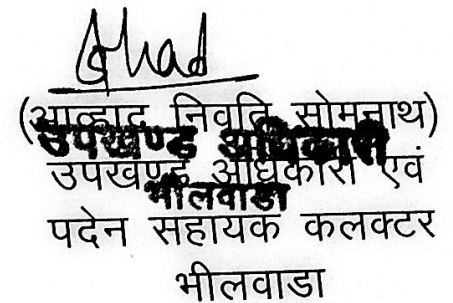 (आव्हाद निवृति सोमनाथ)
उपखण्ड अधिकारी
उपखण्ड अधिकारी एवं
भीलवाडा
पदेन सहायक कलक्टर
भीलवाडा